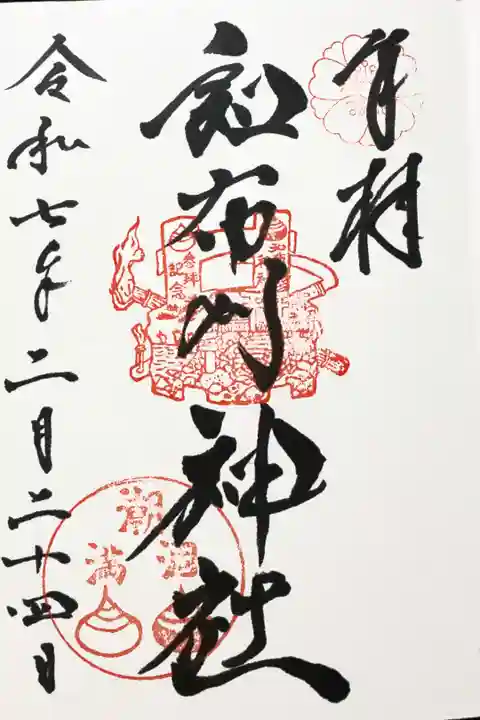 奉拝
和布刈神社
令和七年二月二十四日
参拜
記念
潮
涸
満